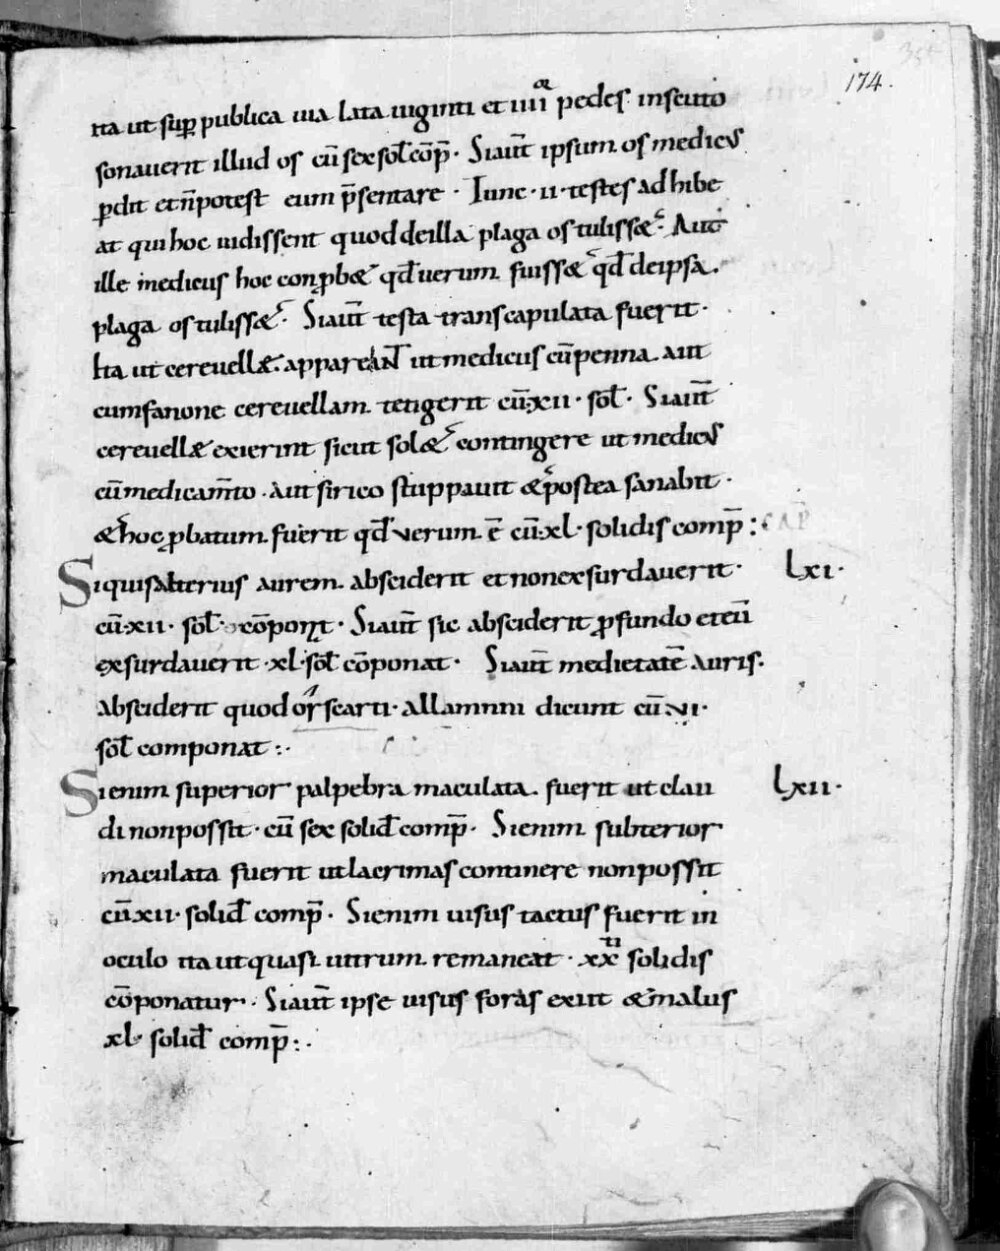 174.
ita ut sup̲ publica uia lata uiginti et iiiior pedes. inscuto
sonauerit illud os cū sex sol̄ cōp̄. Siaut̄ ipsum os medicus
p̲dit et n̄ potest eum p̄sentare. Tunc .ii. testes adhibe
at qui hoc uidissent quod deilla plaga os tulissæ. Aut
ille medicus hoc conp̲bæ qđ uerum fuissæ qđ deipsa.
plaga os tulissæ. Siaut̄ testa transcapulata fuerit.
Ita ut ceruellæ. appareant ut medicus cū penna aut
cumfanone ceruellam tengerit cū .xii. sol̄. Siaut̄
ceruellæ exierint sicut solæ contingere ut medicus
cū medicam̄to. aut sirico stuppauit & postea sanabit.
& hoc p̲batum fuerit qđ verum ē cū .xl. solidis comp̄:
CAP̄
Siquis alterius aurem absciderit et non exsurdauerit.
Lxi.
cū .xii. sol̄. cōponat. Siaut̄ sic absciderit p̲fundo et eū
exsurdauerit .xl. sol̄ cōponat. Siaut̄ medietatē auris.
absciderit quod orscarti. allamnni dicunt cū .vi.
sol̄ componat:.
Sienim superior palpebra maculata. fuerit ut clau
Lxii.
di non possit. cū sex solid̄ comp̄. Sienim subterior
maculata fuerit ut lacrimas continere non possit
cū .xii. solid̄ comp̄. Sienim uisus tactus fuerit in
oculo ita ut quasi uitrum remaneat. xxti solidis
cōponatur. Siaut̄ ipse uisus foras exiit & malus
xl. solid̄ comp̄:.